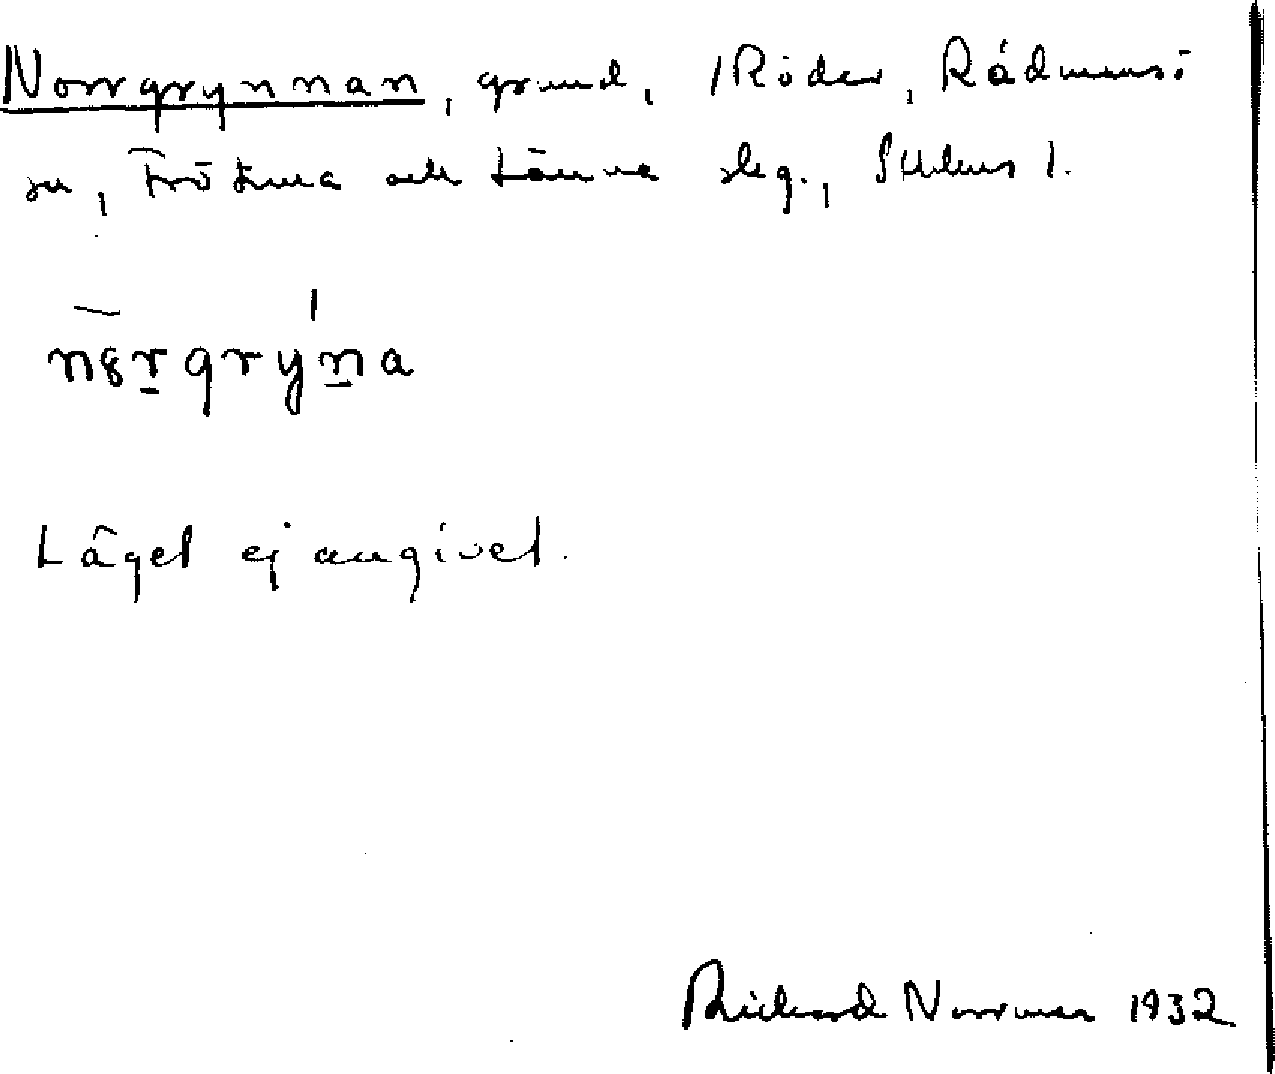 Norrgrynnan, grund, /Röder, Rådmansö
sn, Frötuna och Länna skg., Sthlms l.
Läget ej angivet.
Rickard Norrman 1932